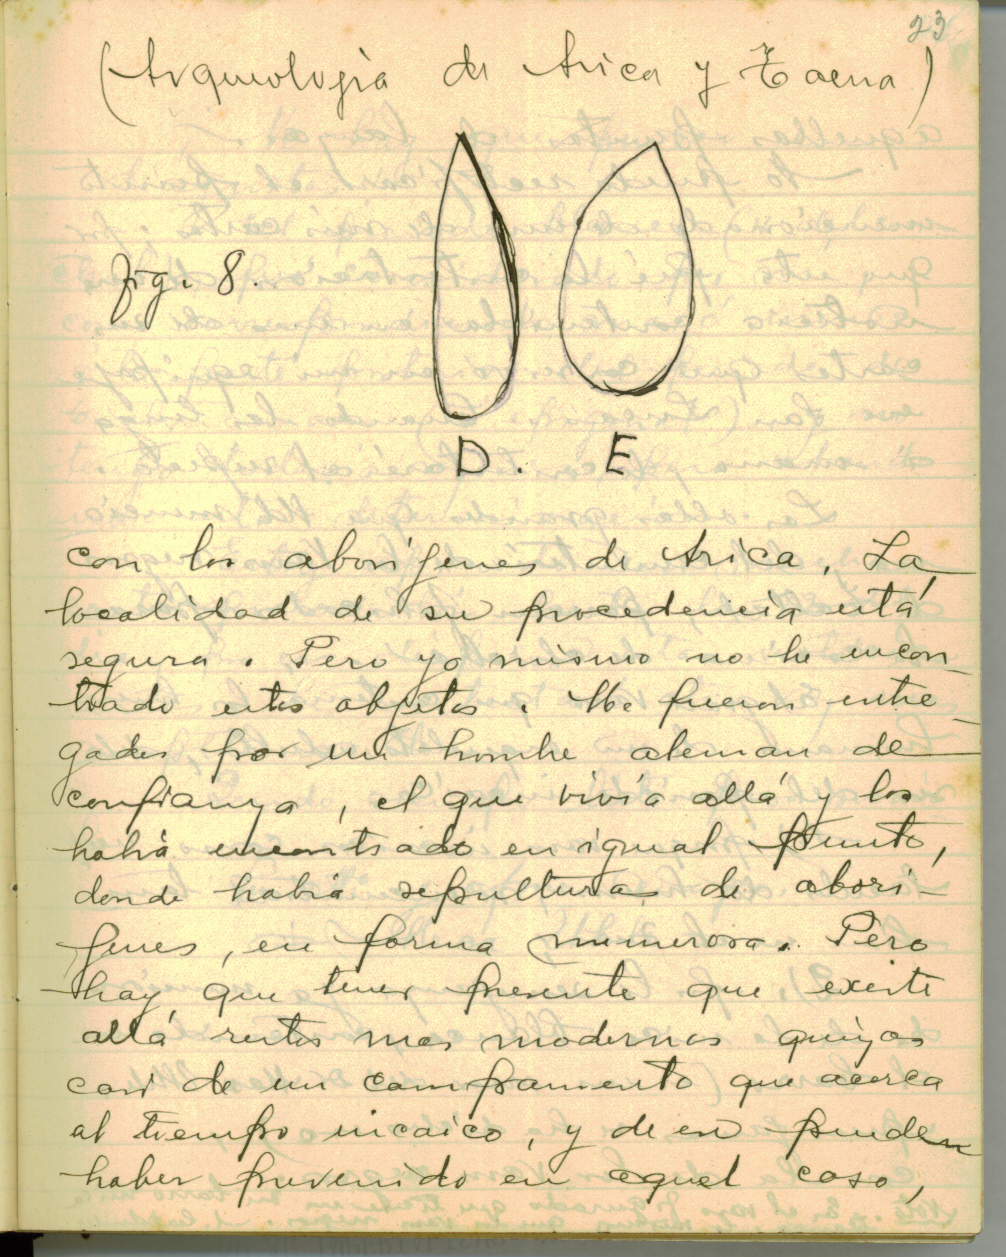 23
(Arqueología de Arica y Tacna)
fig. 8.
D. E
con los aborígenes de Arica. La
localidad de su procedencia está
segura. Pero yo mismo no he encon
trado estos objetos. Me fueron entre
gados por un hombre aleman de
confianza, el que vivía allá y los
habia encontrado en igual punto,
donde habia sepulturas de abori-
genes, en forma numerosa. Pero
hay que tener presente que existe
allá restos mas modernos quizas
casi de un campamento que acerca
al tiempo incaico, y de en pueden
haber provenido en aquel caso,